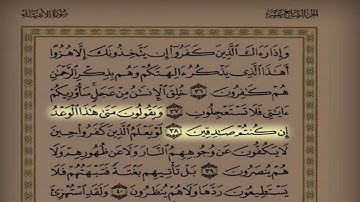 الجزء السابع عشر سورة الأنبياء
وَإِذَا رَءَاكَ ٱلَّذِينَ كَفَرُوٓا۟ إِن يَتَّخِذُونَكَ إِلَّا هُزُوًا
أَهَـٰذَا ٱلَّذِى يَذْكُرُ ءَالِهَتَكُمْ وَهُم بِذِكْرِ ٱلرَّحْمَـٰنِ
هُمْ كَـٰفِرُونَ ٣٦ خُلِقَ ٱلْإِنسَـٰنُ مِنْ عَجَلٍ سَأُو۟رِيكُمْ
ءَايَـٰتِى فَلَا تَسْتَعْجِلُونِ ٣٧ وَيَقُولُونَ مَتَىٰ هَـٰذَا ٱلْوَعْدُ
إِن كُنتُمْ صَـٰدِقِينَ ٣٨ لَوْ يَعْلَمُ ٱلَّذِينَ كَفَرُوا۟ حِينَ
لَا يَكُفُّونَ عَن وُجُوهِهِمُ ٱلنَّارَ وَلَا عَن ظُهُورِهِمْ وَلَا
هُمْ يُنصَرُونَ ٣٩ بَلْ تَأْتِيهِم بَغْتَةً فَتَبْهَتُهُمْ فَلَا
يَسْتَطِيعُونَ رَدَّهَا وَلَا هُمْ يُنظَرُونَ ٤٠ وَلَقَدِ ٱسْتُهْزِئَ